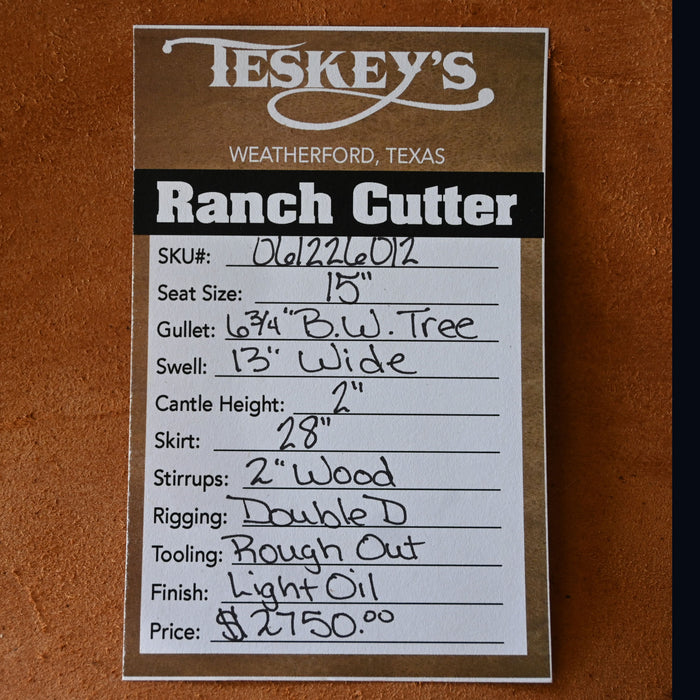 TESKEY'S
WEATHERFORD, TEXAS
Ranch Cutter
SKU#: 061226012
Seat Size: 15"
Gullet: 6 3/4" B.W. Tree
Swell: 13" Wide
Cantle Height: 2"
Skirt: 28"
Stirrups: 2" Wood
Rigging: Double D
Tooling: Rough Out
Finish: Light Oil
Price: $2750.00